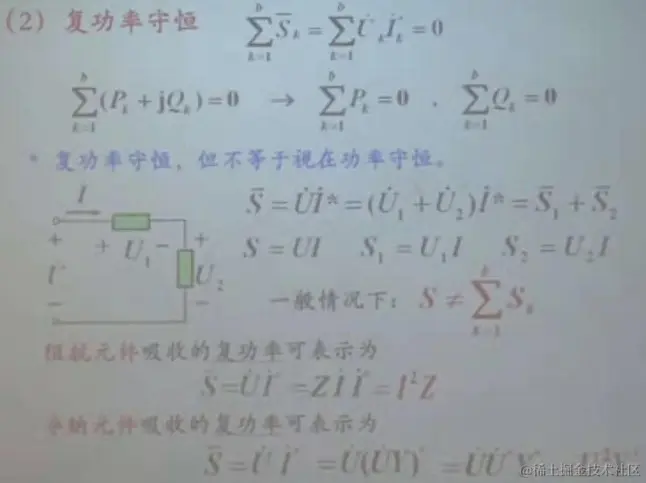 (2) 复功率守恒 ∑_{k=1}^{b} S̄_k = ∑_{k=1}^{b} U̇_k İ_k^* = 0
∑_{k=1}^{b} (P_k + jQ_k) = 0 → ∑_{k=1}^{b} P_k = 0 . ∑_{k=1}^{b} Q_k = 0
* 复功率守恒, 但不等于视在功率守恒。
S̄ = U̇İ* = (U̇_1 + U̇_2)İ* = S̄_1 + S̄_2
S = UI S_1 = U_1I S_2 = U_2I
一般情况下: S ≠ ∑_{k=1}^{b} S_k
İ
+ U_1 −
+ U_2 −
+ −
阻抗元件吸收的复功率可表示为
S̄ = U̇İ* = Zİİ* = I²Z
导纳元件吸收的复功率可表示为
S̄ = U̇İ* = U̇(U̇Y)* = U̇U̇*Y* = U²Y*
@稀土掘金技术社区